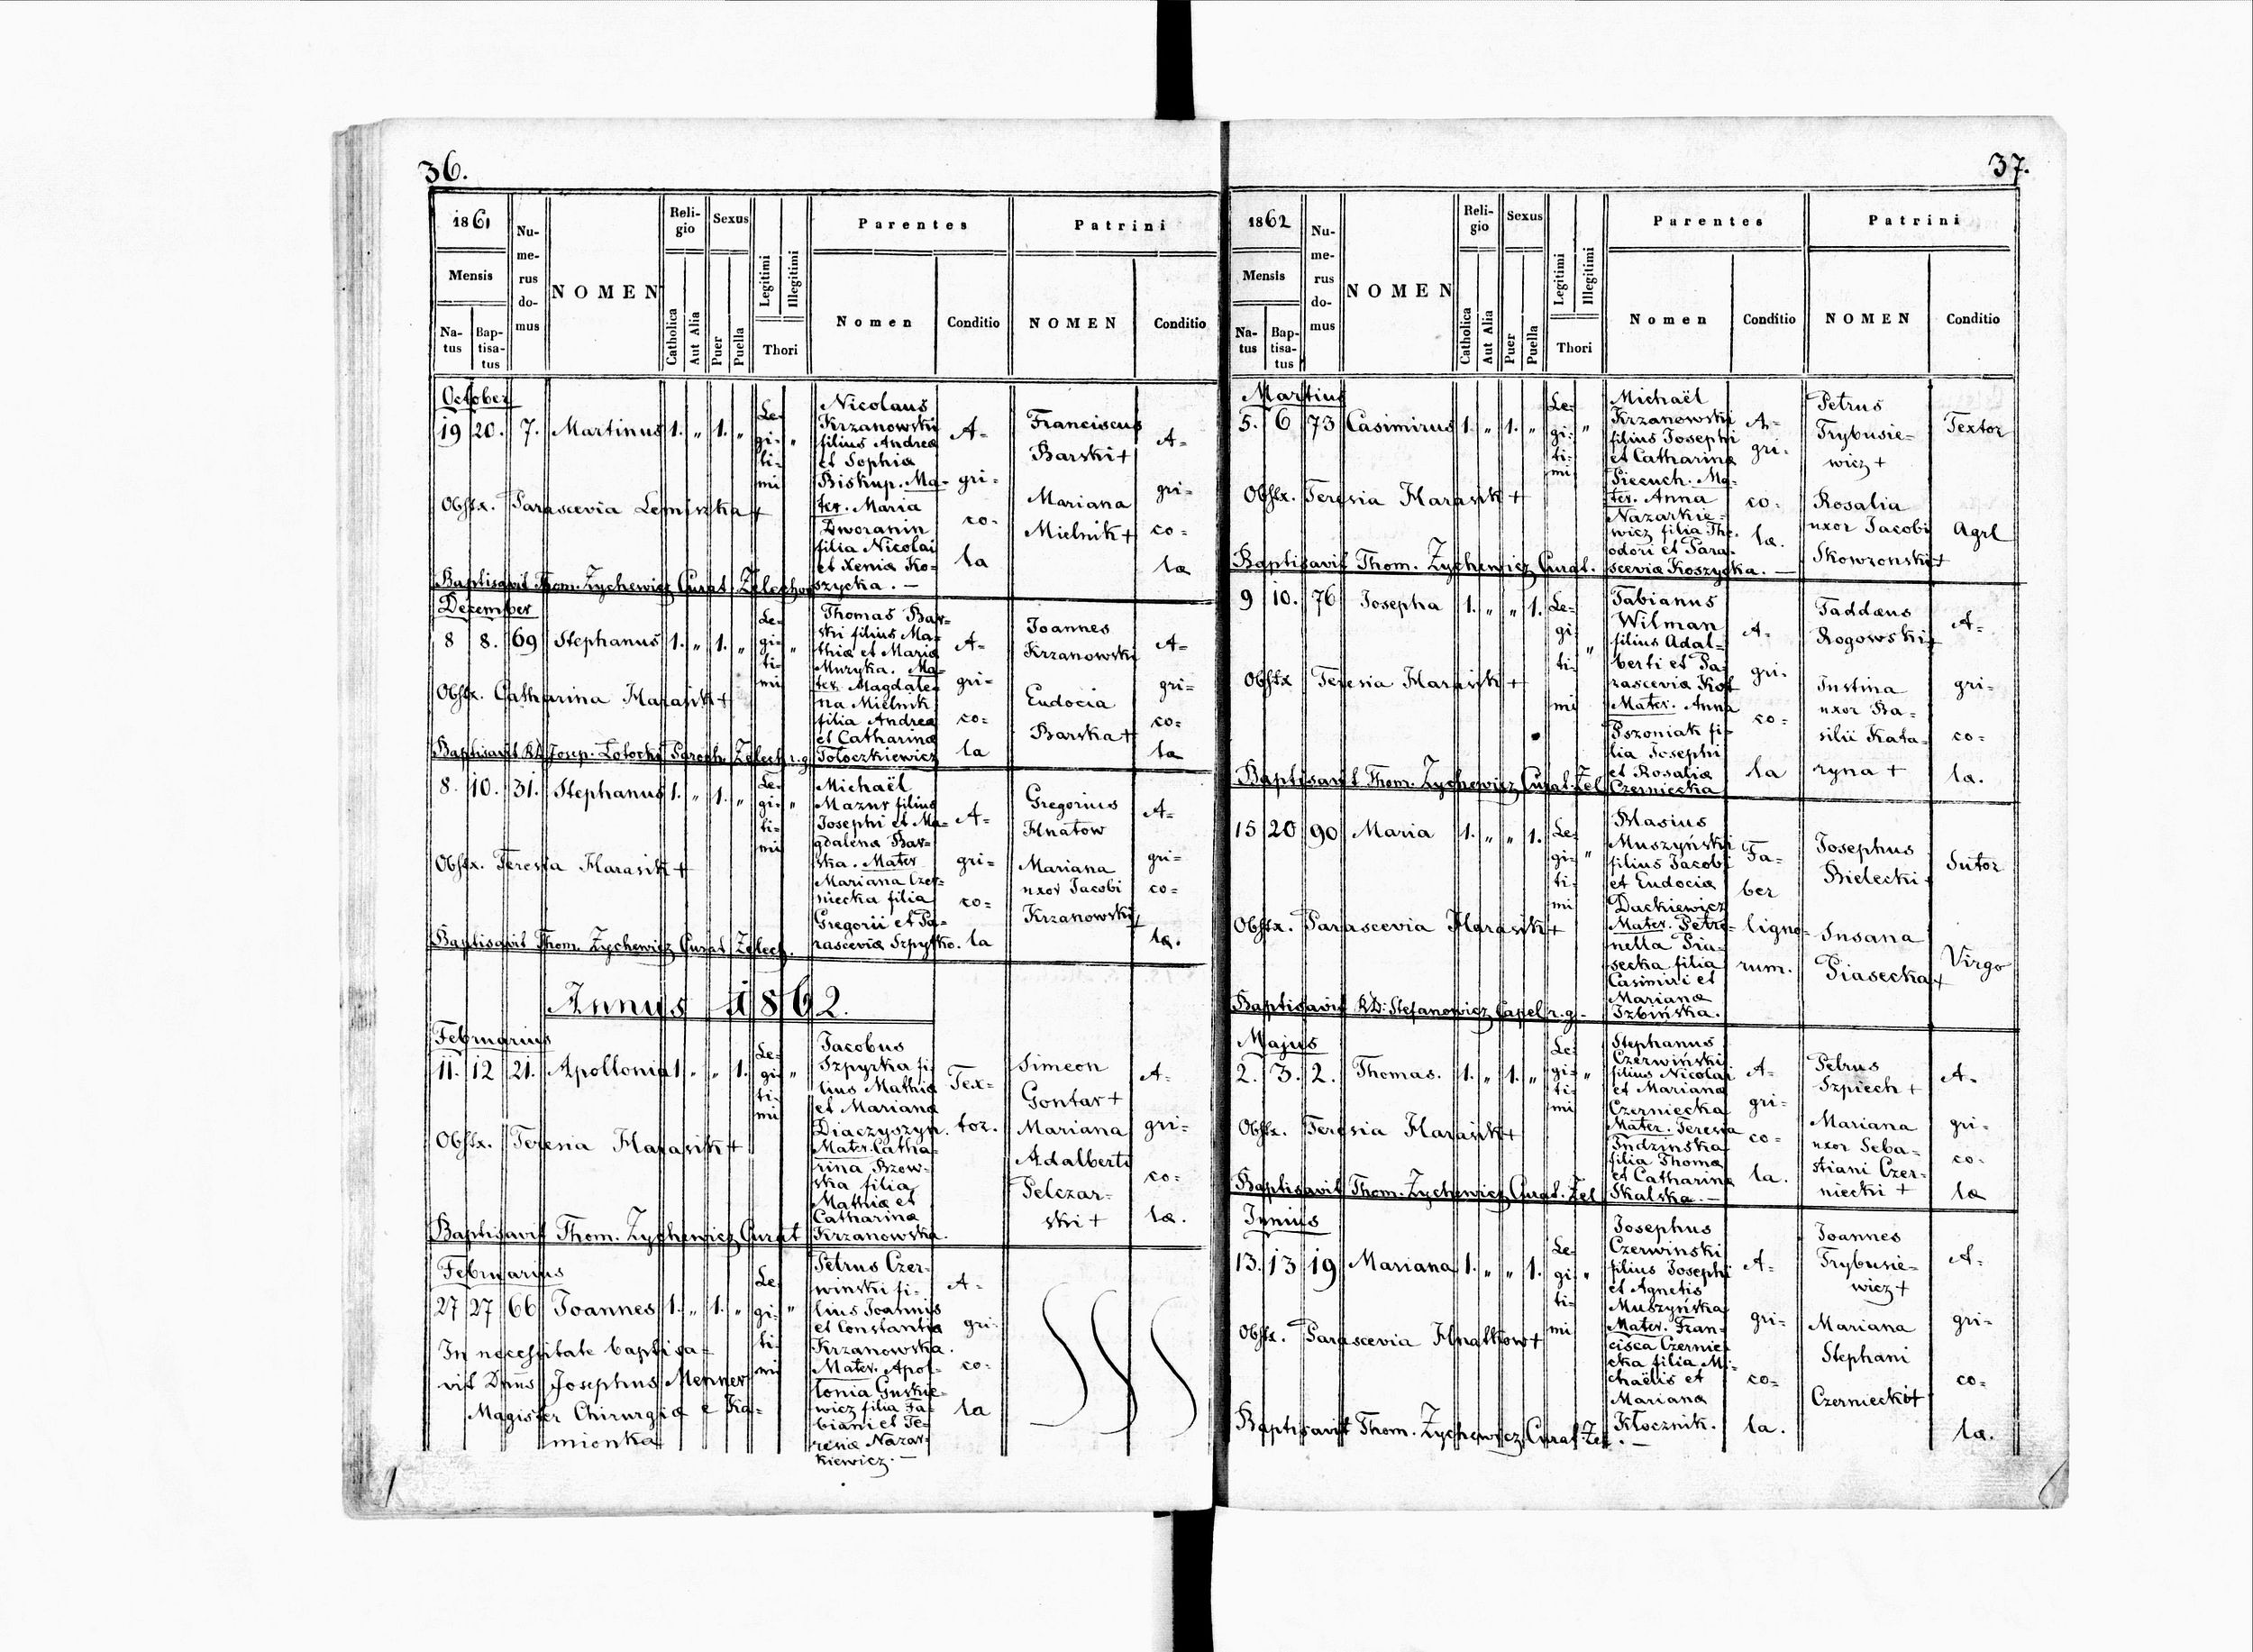 36.
1861
Mensis
Na-
tus
Bap-
tisa-
tus
Nu-
me-
rus
do-
mus
NOMEN
Reli-
gio
Catholica
Aut Alia
Sexus
Puer
Puella
Legitimi
Illegitimi
Thori
Parentes
Nomen
Conditio
Patrini
NOMEN
Conditio
October
19 20. 7. Martinus 1. " 1. "
Le-
gi-
ti-
mi
"
Nicolaus
Krzanowski
filius Andreæ
et Sophiæ
Biskup. Ma-
ter. Maria
Dworanin
filia Nicolai
et Xeniæ Ko-
szycka. —
A-
gri-
co-
la
Franciscus
Barski +
Mariana
Mielnik +
A-
gri-
co-
læ
Obstx. Parascevia Lemiszka +
Baptisavit Thom. Zychewicz Curat. Zelechow
Dezember
8 8. 69 Stephanus 1. " 1. "
Le-
gi-
ti-
mi
"
Thomas Bar-
ski filius Ma-
thiæ et Mariæ
Muzyka. Ma-
ter. Magdale-
na Mielnik
filia Andreæ
et Catharinæ
Tołoczkiewicz
A-
gri-
co-
la
Joannes
Krzanowski
Eudocia
Barska +
A-
gri-
co-
la
Obstx. Catharina Harasik +
Baptisavit RD. Josep. Łotocki Paroch. Zelech r. g.
8. 10. 31. Stephanus 1. " 1. "
Le-
gi-
ti-
mi
"
Michaël
Mazur filius
Josephi et Ma-
gdalenæ Bar-
ska. Mater
Mariana Czer-
niecka filia
Gregorii et Pa-
rasceviæ Szpytko.
A-
gri-
co-
la
Gregorius
Hnatow
Mariana
uxor Jacobi
Krzanowski +
A-
gri-
co-
læ.
Obstx. Teresia Harasik +
Baptisavit Thom. Zychewicz Curat Zelech.
Annus 1862.
Februarius
11. 12 21. Apollonia 1 " " 1.
Le-
gi-
ti-
mi
"
Jacobus
Szpyrka fi-
lius Mathiæ
et Marianæ
Diaczyszyn.
Mater. Catha-
rina Bzow-
ska filia
Mathiæ et
Catharinæ
Krzanowska.
Tex-
tor.
Simeon
Gontar +
Mariana
Adalberti
Pelczar-
ski +
A-
gri-
co-
læ.
Obstx. Teresia Harasik +
Baptisavit Thom. Zychewicz Curat
Februarius
27 27 66 Joannes 1. " 1. "
Le-
gi-
ti-
mi
"
Petrus Czer-
winski fi-
lius Joannis
et Constantiæ
Krzanowska.
Mater. Apol-
lonia Guskie-
wicz filia Fa-
biani et Te-
resiæ Nazar-
kiewicz. —
A-
gri-
co-
la
In necessitate baptisa-
vit Dnus Josephus Menner
Magister Chirurgiæ e Ka-
mionka
37.
1862
Mensis
Na-
tus
Bap-
tisa-
tus
Nu-
me-
rus
do-
mus
NOMEN
Reli-
gio
Catholica
Aut Alia
Sexus
Puer
Puella
Legitimi
Illegitimi
Thori
Parentes
Nomen
Conditio
Patrini
NOMEN
Conditio
Martius
5. 6 73 Casimirus 1. " 1. "
Le-
gi-
ti-
mi
"
Michaël
Krzanowski
filius Josephi
et Catharinæ
Piecuch. Ma-
ter. Anna
Nazarkie-
wicz filia The-
odori et Para-
sceviæ Koszycka. —
A-
gri-
co-
læ.
Petrus
Trybusie-
wicz +
Rosalia
uxor Jacobi
Skowronski +
Textor
Agrl
Obstx. Teresia Harasik +
Baptisavit Thom. Zychewicz Curat.
9 10. 76 Josepha 1. " " 1.
Le-
gi-
ti-
mi
"
Fabianus
Wilman
filius Adal-
berti et Pa-
rasceviæ Kot
Mater. Anna
Pszoniak fi-
lia Josephi
et Rosaliæ
Czerniecka
A-
gri-
co-
la
Taddæus
Rogowski +
Justina
uxor Ba-
silii Kata-
ryna +
A-
gri-
co-
læ.
Obstx Teresia Harasik +
Baptisavit Thom. Zychewicz Curat. Zel
15 20 90 Maria 1. " " 1.
Le-
gi-
ti-
mi
"
Blasius
Muszyński
filius Jacobi
et Eudociæ
Dackiewicz
Mater. Petro-
nella Pia-
secka filia
Casimiri et
Marianæ
Izbińska.
Fa-
ber
ligno-
rum.
Josephus
Bielecki
Susana
Piasecka +
Sutor
Virgo
Obstx. Parascevia Harasik +
Baptisavit RD: Stefanowicz Capel r. g. -
Majus
2. 3. 2. Thomas. 1. " 1. "
Le-
gi-
ti-
mi
"
Stephanus
Czerwiński
filius Nicolai
et Marianæ
Czerniecka
Mater. Teresia
Indzinska
filia Thomæ
et Catharinæ
Skalska. —
A-
gri-
co-
la.
Petrus
Szpiech +
Mariana
uxor Seba-
stiani Czer-
niecki +
A-
gri-
co-
læ
Obstx. Teresia Harasik +
Baptisavit Thom. Zychewicz Curat. Zel
Junius
13. 13 19 Mariana 1. " " 1.
Le-
gi-
ti-
mi
"
Josephus
Czerwinski
filius Josephi
et Agnetis
Muszyńska
Mater. Fran-
cisca Czernie-
cka filia Mi-
chaëlis et
Marianæ
Kłocznik.
A-
gri-
co-
la.
Joannes
Trybusie-
wicz +
Mariana
Stephani
Czerniecki +
A-
gri-
co-
læ.
Obstx. Parascevia Hnatkow +
Baptisavit Thom. Zychewicz Curat. Zel. —